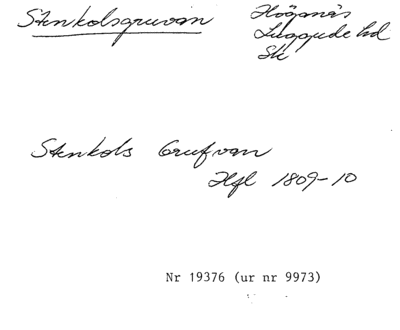 Stenkolsgruvan
Höganäs
Luggude hd
Sk
Stenkols Grufvan
Hfl 1809-10
Nr 19376 (ur nr 9973)